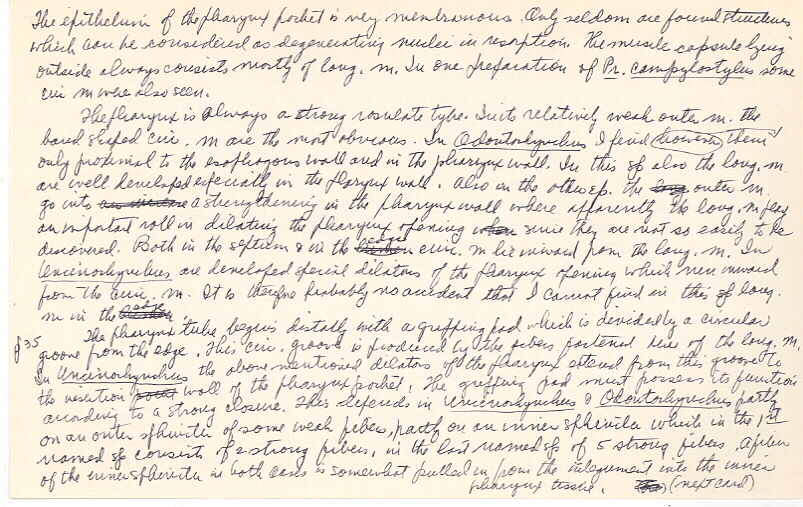 The epithelium of the pharynx pocket is very membranous. Only seldom are found structures
which can be considered as degenerating nuclei in resorption. The muscle capsule lying
outside always consists mostly of long. m. In one preparation of Pr. campylostylus some
cir m were also seen.
The pharynx is always a strong rosulate type. In its relatively weak outer m. the
band shaped cir. m are the most obvious. In Odontorhynchus I find however them
only proximal to the esophagous wall and in the pharynx wall. In this sp also the long. m.
are well developed especially in the pharynx wall. Also in the other sp. the outer m.
go into a strengthening in the pharynx wall where apparently the long. m play
an important roll in dilating the pharynx opening since they are not so easily to be
discovered. Both in the septum & in the edge circ. m lie inward from the long. m. In
Uncinorhynchus are developed special dilators of the pharynx opening which run inward
from the circ. m. It is therefore probably no accident that I cannot find in this sp long.
m in the edge
p 35 The pharynx tube begins distally with a gripping pad which is divided by a circular
groove from the edge. This cir. groove is produced by the fibers of the long. m.
In Uncinorhynchus the above mentioned dilators of the pharynx extend from this groove to
the insertion wall of the pharynx pocket. The gripping pad must possess its function
according to a strong closure. This depends in Uncinorhynchus & Odontorhynchus partly
on an outer sphincter of some weak fibers, partly on an inner sphincter which in the 1st
named sp consists of 2 strong fibers, in the last named sp of 5 strong fibers. A fiber
of the inner sphincter in both cases is somewhat pulled in from the integument into the inner
pharynx tissue. (next card)